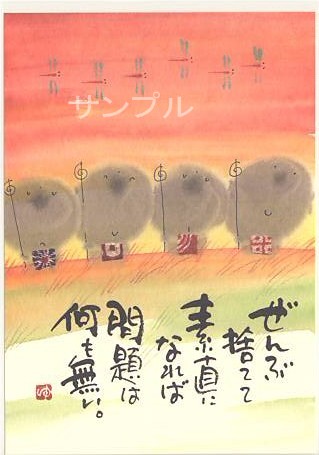 サンプル
ぜんぶ
捨てて
素直に
なれば
問題は
何も無い。